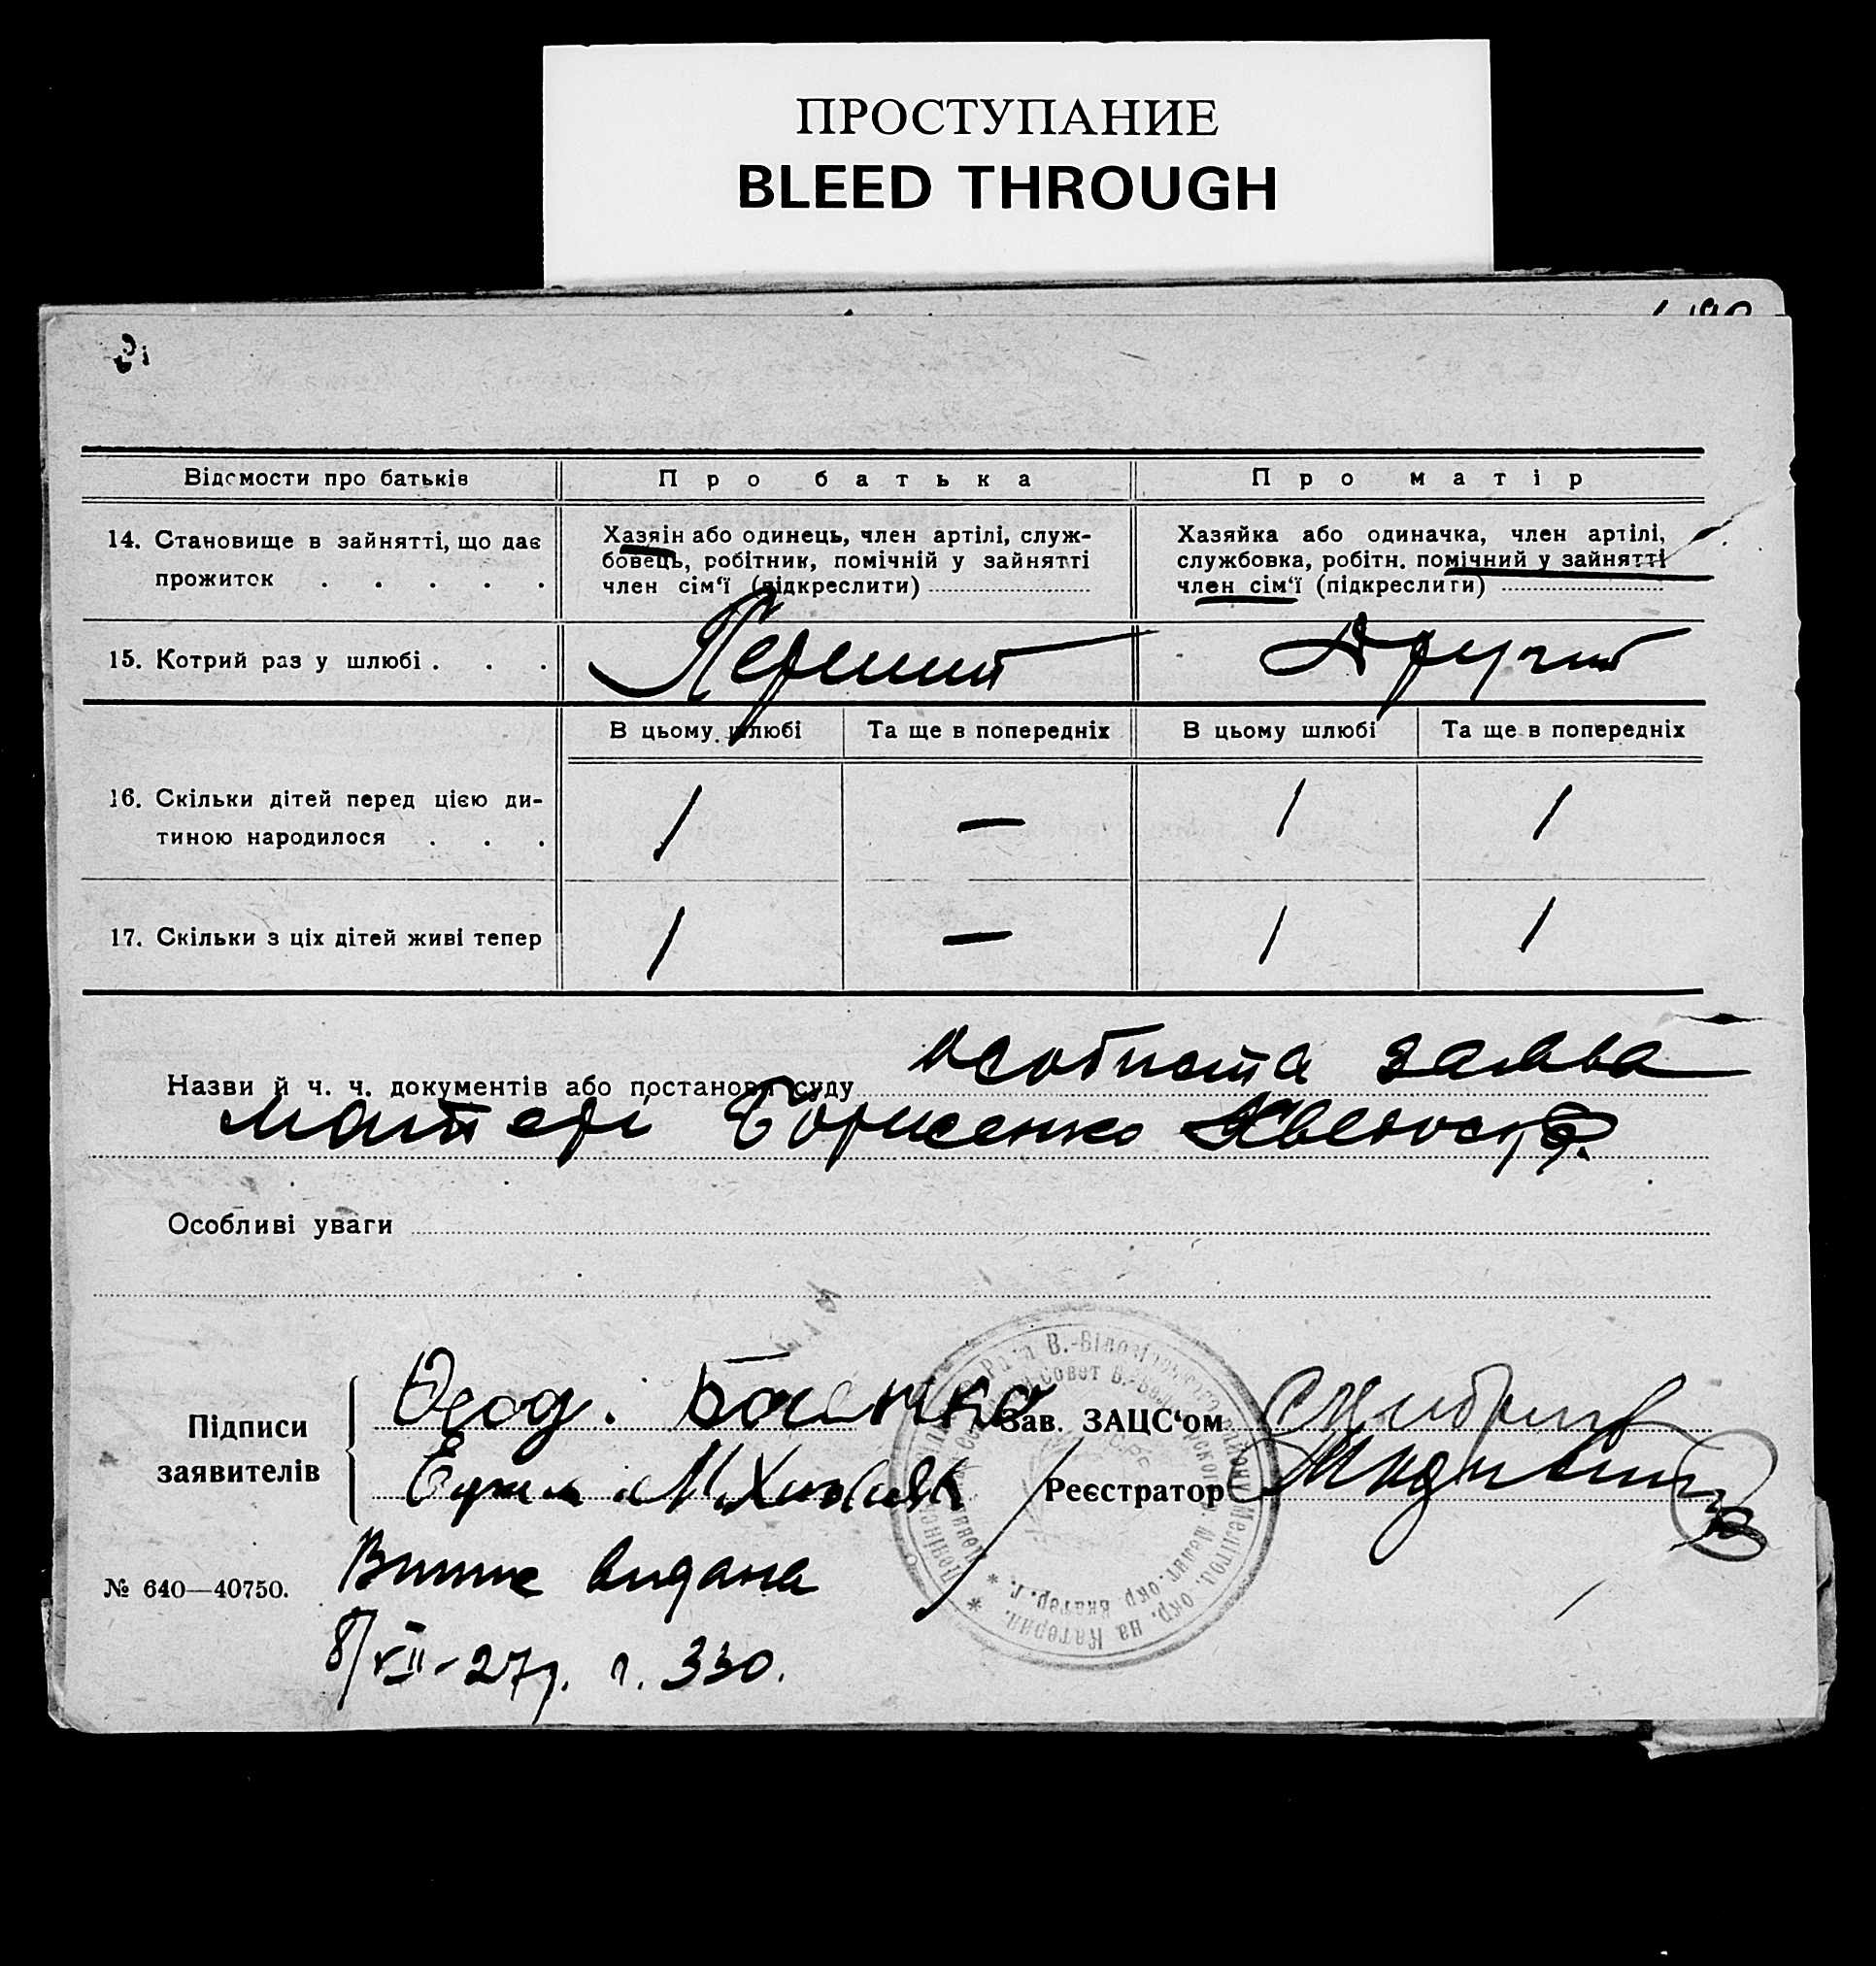 ПРОСТУПАНИЕ
BLEED THROUGH
Відомости про батьків
Про батька
Про матір
14. Становище в зайнятті, що дає
прожиток . . . . .
Хазяін або одинець, член артілі, служ-
бовець, робітник, помічній у зайнятті
член сім‘ї (підкреслити)
Хазяйка або одиначка, член артілі,
службовка, робітн. помічний у зайнятті
член сім‘ї (підкреслити)
15. Котрий раз у шлюбі . . .
Перший
Другий
В цьому шлюбі
Та ще в попередніх
В цьому шлюбі
Та ще в попередніх
16. Скільки дітей перед цією ди-
тиною народилося . . .
1 — 1 1
17. Скільки з ціх дітей живі тепер
1 — 1 1
Назви й ч. ч. документів або постанови суду особиста заява
матері Борисенко
Особливі уваги
Підписи
заявителів
Зав. ЗАЦС‘ом
Реєстратор
№ 640—40750.
Випис видана
8/VII-27р. п. 330.